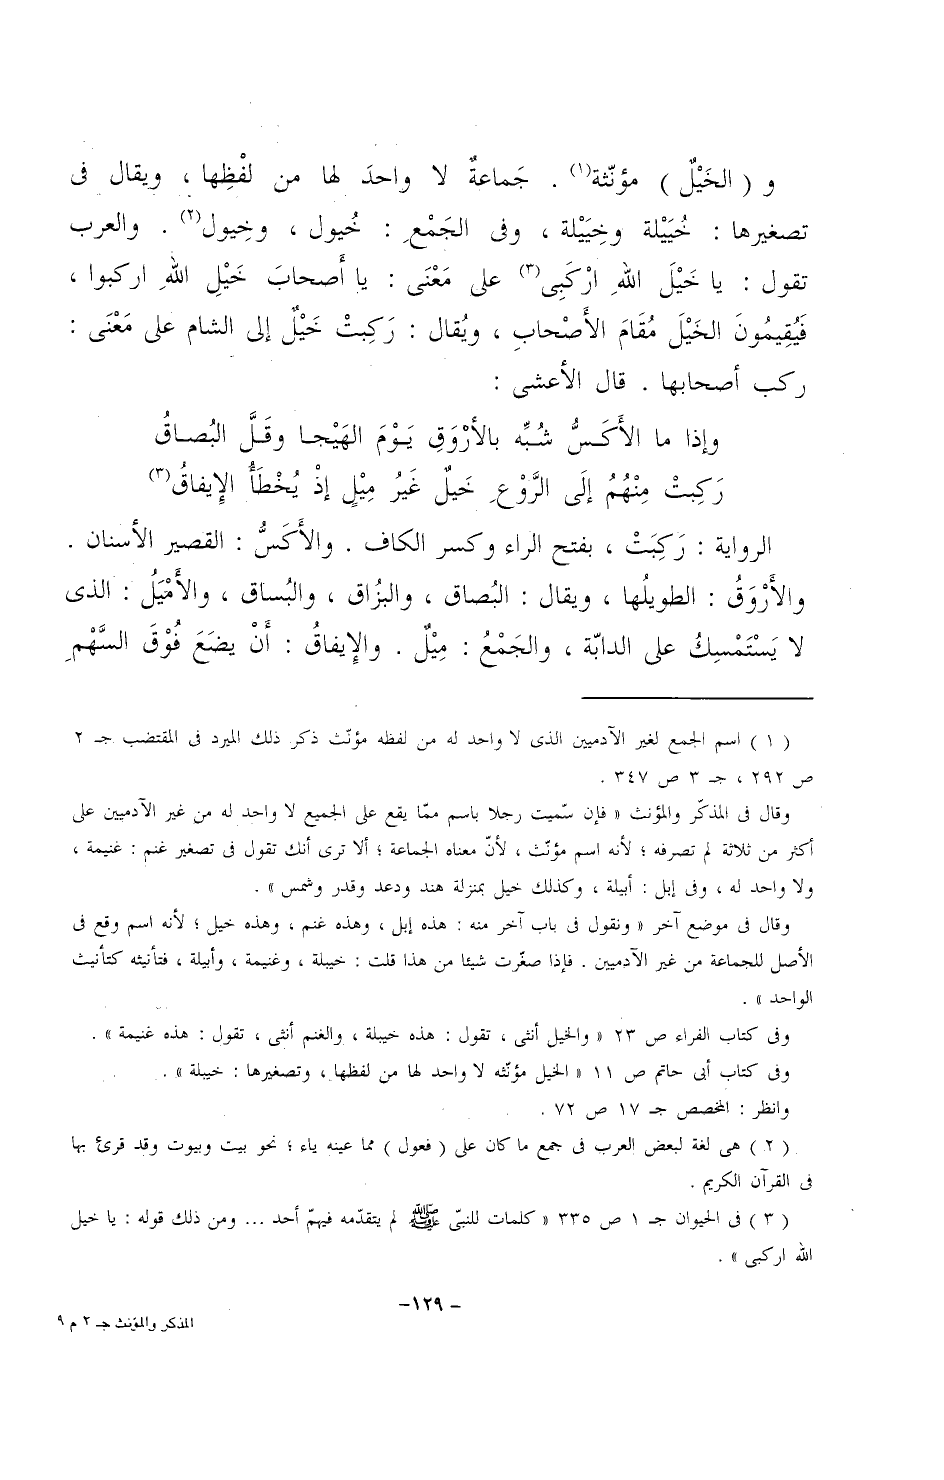 و ( الخَيْلٌ ) مؤنّثة(١) . جَماعةٌ لا واحدَ لها من لفْظِها ، ويقال فى
تصغيرها : خُيَيْلة وخِيَيْلة ، وفى الجَمْعِ : خُيول ، وخِيول(٢) . والعرب
تقول : يا خَيْلَ اللهِ ارْكَبِى(٣) على مَعْنَى : يا أَصحابَ خَيْلِ اللهِ اركبوا ،
فَيُقِيمُونَ الخَيْلَ مُقَامَ الأَصْحابِ ، ويُقال : رَكِبتْ خَيْلٌ إلى الشام على مَعْنَى :
ركب أصحابها . قال الأعشى :
وإذا ما الأَكَسُّ شُبِّه بالأرْوَقِ يَوْمَ الهَيْجا وقَلَّ البُصاقُ
رَكِبتْ مِنْهُمُ إلَى الرَّوْعِ خَيلٌ غَيرُ مِيْلٍ إذْ يُخْطَأُ الإيفاقُ(٣)
الرواية : رَكِبَتْ ، بفتح الراء وكسر الكاف . والأكَسُّ : القصير الأسنان .
والأَرْوَقُ : الطويلُها ، ويقال : البُصاق ، والبزُاق ، والبُساق ، والأَمْيَلُ : الذى
لا يَسْتَمْسِكُ على الدابّة ، والجَمْعُ : مِيْلٌ . والإيفاقُ : أَنْ يضَعَ فُوْقَ السَّهْمِ
( ١ ) اسم الجمع لغير الآدميين الذى لا واحد له من لفظه مؤنّث ذكر ذلك المبرد فى المقتضب جـ ٢
ص ٢٩٢ ، جـ ٣ ص ٣٤٧ .
وقال فى المذكّر والمؤنث « فإن سّميت رجلا باسم ممّا يقع على الجميع لا واحد له من غير الآدميين على
أكثر من ثلاثة لم تصرفه ؛ لأنه اسم مؤنّث ، لأنّ معناه الجماعة ؛ ألا ترى أنك تقول فى تصغير غنم : غنيمة ،
ولا واحد له ، وفى إبل : أبيلة ، وكذلك خيل بمنزلة هند ودعد وقدر وشمس » .
وقال فى موضع آخر « ونقول فى باب آخر منه : هذه إبل ، وهذه غنم ، وهذه خيل ؛ لأنه اسم وقع فى
الأصل للجماعة من غير الآدميين . فإذا صغّرت شيئا من هذا قلت : خييلة ، وغنيمة ، وأبيلة ، فتأنيثه كتأنيث
الواحد » .
وفى كتاب الفراء ص ٢٣ « والخيل أنثى ، تقول : هذه خييلة ، والغنم أنثى ، تقول : هذه غنيمة » .
وفى كتاب أبى حاتم ص ١١ « الخيل مؤنّثه لا واحد لها من لفظها ، وتصغيرها : خييلة » .
وانظر : المخصص جـ ١٧ ص ٧٢ .
( ٢ ) هى لغة لبعض العرب فى جمع ما كان على ( فعول ) مما عينه ياء ؛ نحو بيت وبيوت وقد قرئ بها
فى القرآن الكريم .
( ٣ ) فى الحيوان جـ ١ ص ٣٣٥ « كلمات للنبىّ ﷺ لم يتقدّمه فيهمّ أحد ... ومن ذلك قوله : يا خيل
الله اركبى » .
- ١٢٩-
المذكر والمؤنث جـ ٢ م ٩